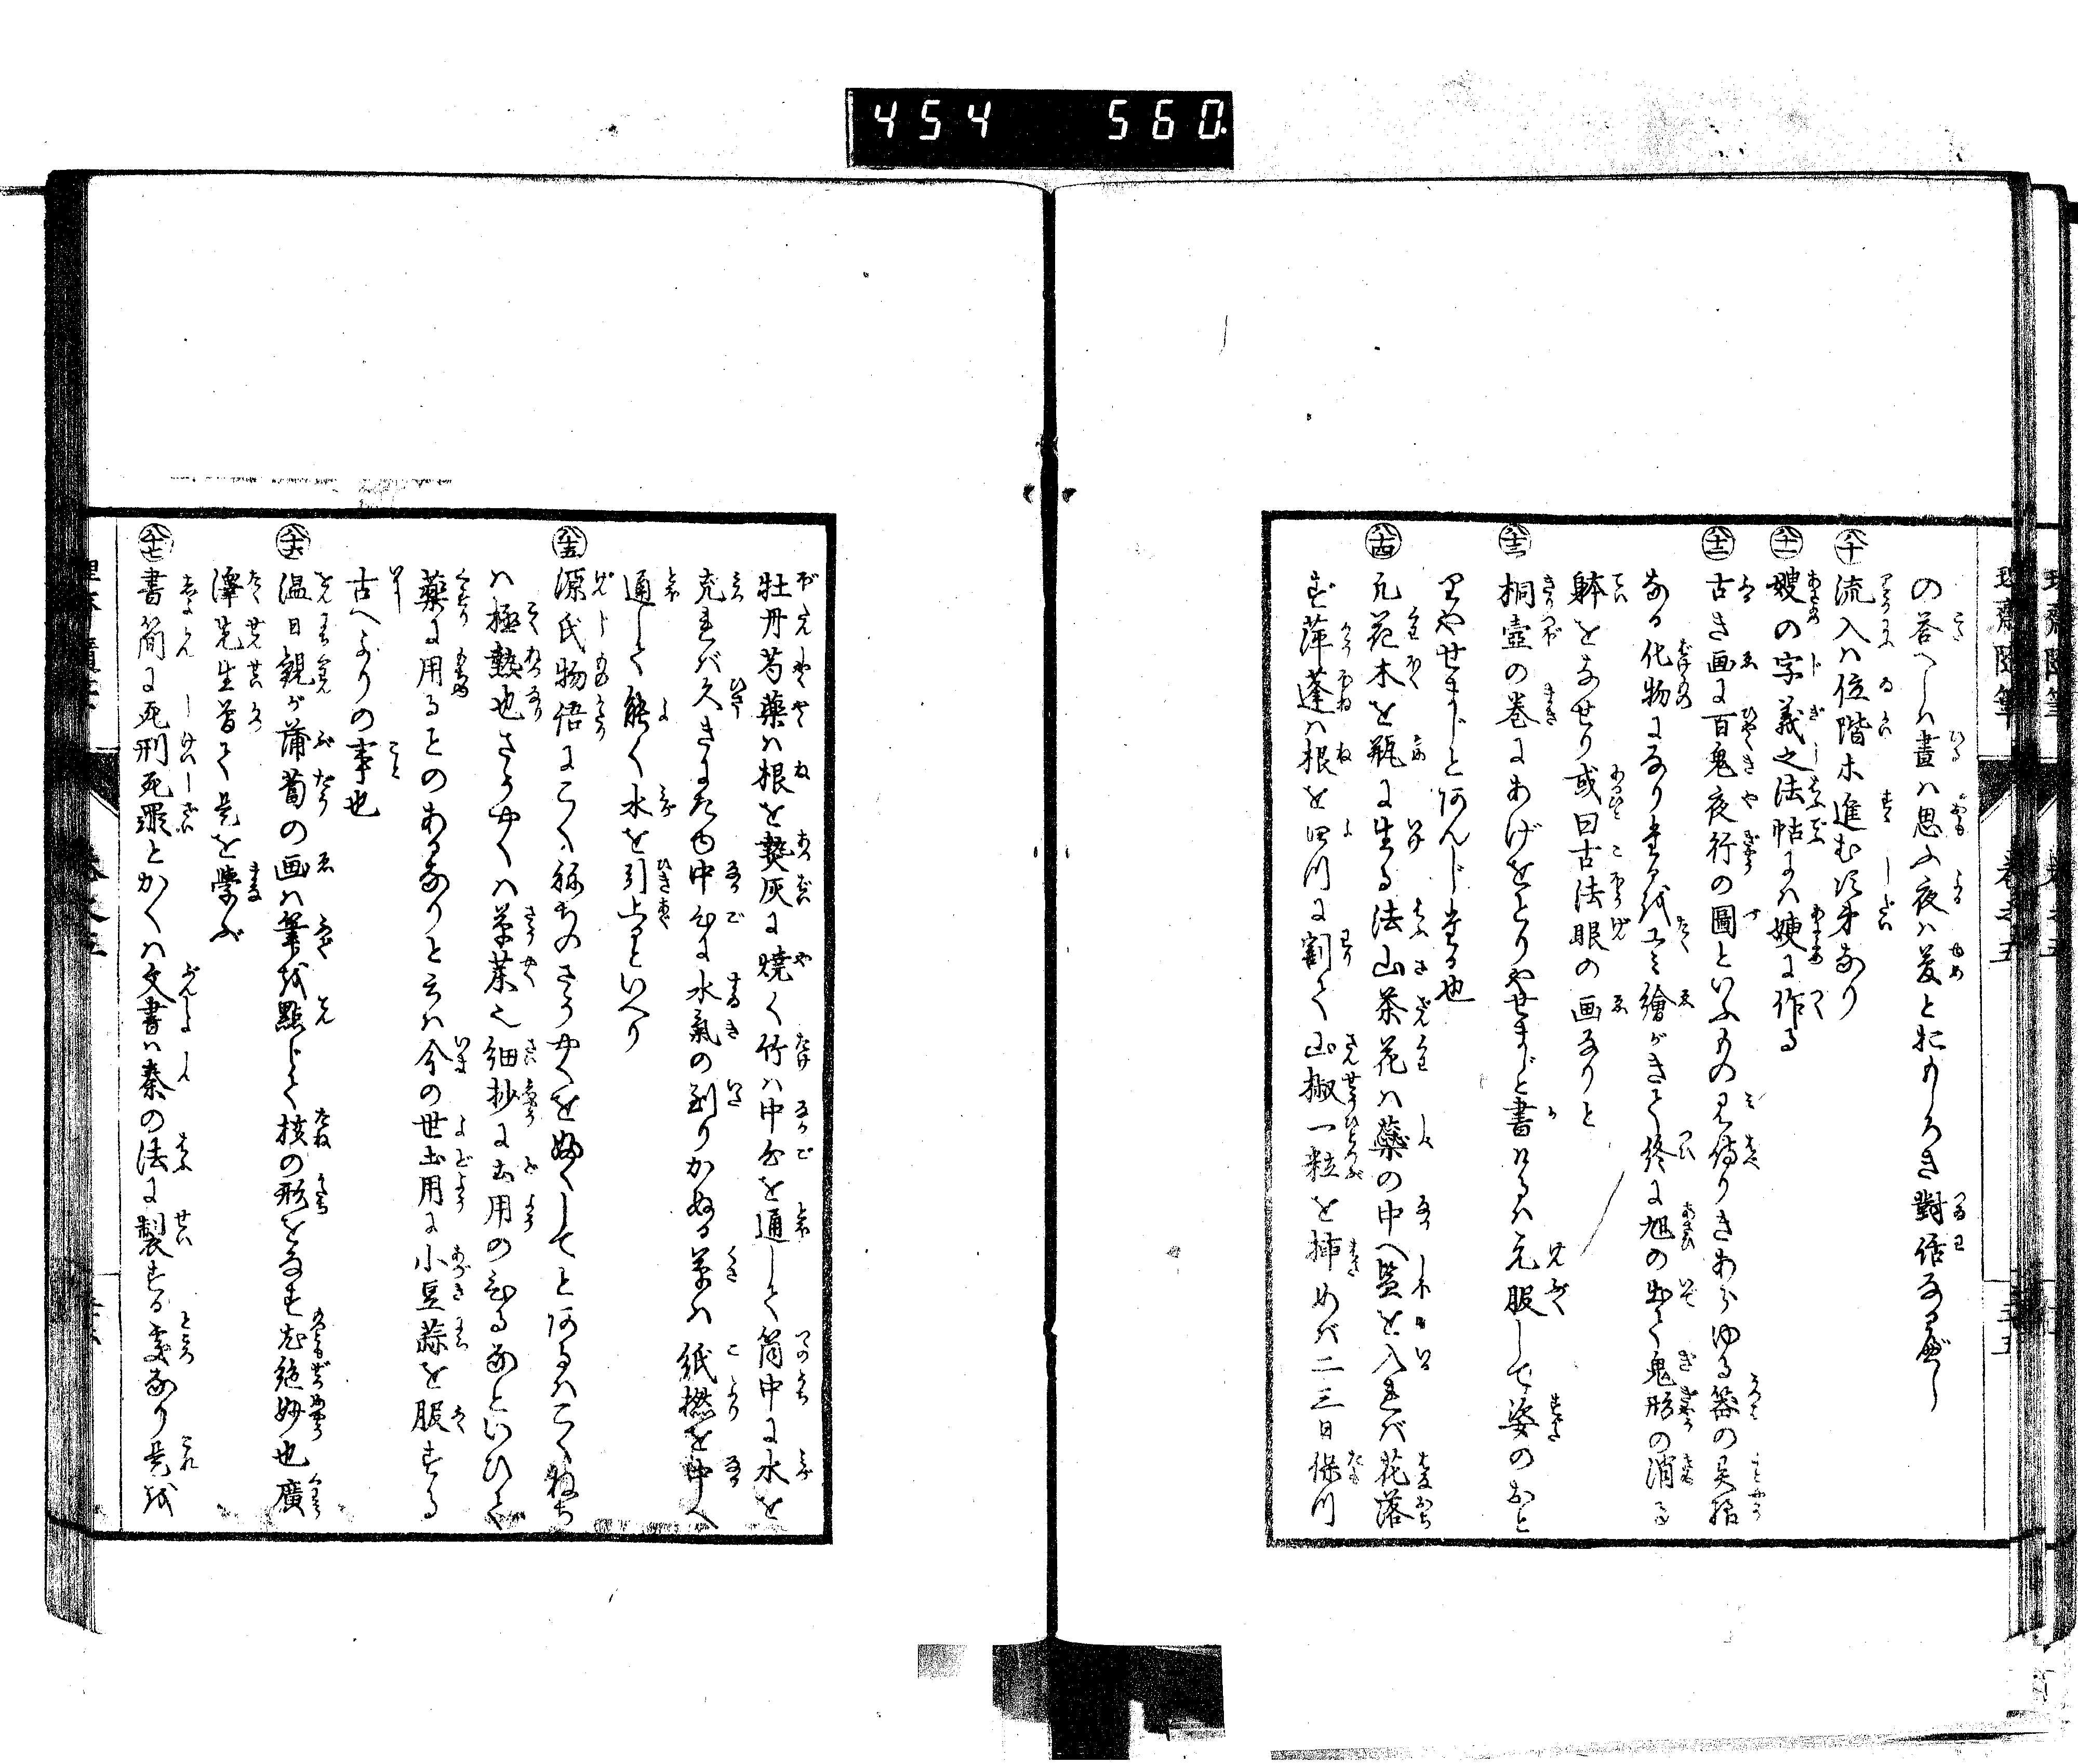 454 560
理齋隨筆 巻之五
の答へしハ晝ハ思ふ夜ハ夢とおもしろき對話なるべし
八十 流入ハ位階ホ進む次第なり
八十一 嫂の字義之法帖にハ㛐に作る
八十二 古き画に百鬼夜行の圖といふもの見侍りきあらゆる器の異形
なる化物になりたるを工ミ繪がきて終に旭の出て鬼形の消る
躰をなせり或曰古法眼の画なりと
八十三 桐壺の巻にあげをとりやせまじと書けるハ元服して姿のおと
りやせまじとあんじたる也
八十四 凡花木を瓶に生る法山茶花ハ蘂の中へ塩を入れバ花落
ず萍蓬ハ根を四ツに割て山椒一粒を挿めバ二三日保ツ
牡丹芍藥ハ根を熱灰に焼く竹ハ中心を通して筒中に水を
充れバ久きにたゆ中心に水氣の到りかぬる草ハ紙撚を中へ
通して能く水を引上るといへり
八十五 源氏物語にごく祢ちのさうやくを婦くしてとあるハごくねち
ハ極熱也さうやくハ草薬也細抄に土用のひるなといひて
薬に用るとのあるなりと云ハ今の世土用に小豆蒜を服する
古へぶりの事也
八十六 温日観が蒲萄の画ハ筆を點じて核の形をなす尤絶妙也廣
澤先生曽て是を學ぶ
八十七 書簡に死刑死罪とかくハ文書ハ秦の法に製する處なり是を